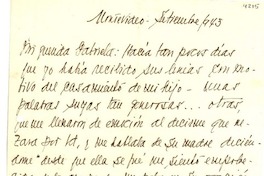 Montevideo - Setiembre/943
Mi querida Gabriela: Hacía tan pocos días
que yo había recibido sus líneas con mo-
tivo del casamiento de mi hijo - unas
palabras suyas tan generosas... otras
que me llenaron de emoción al decirme que re-
zara por Ud, y me hablaba de su madre dicién-
dome "desde que ella se fué me siento empobre-